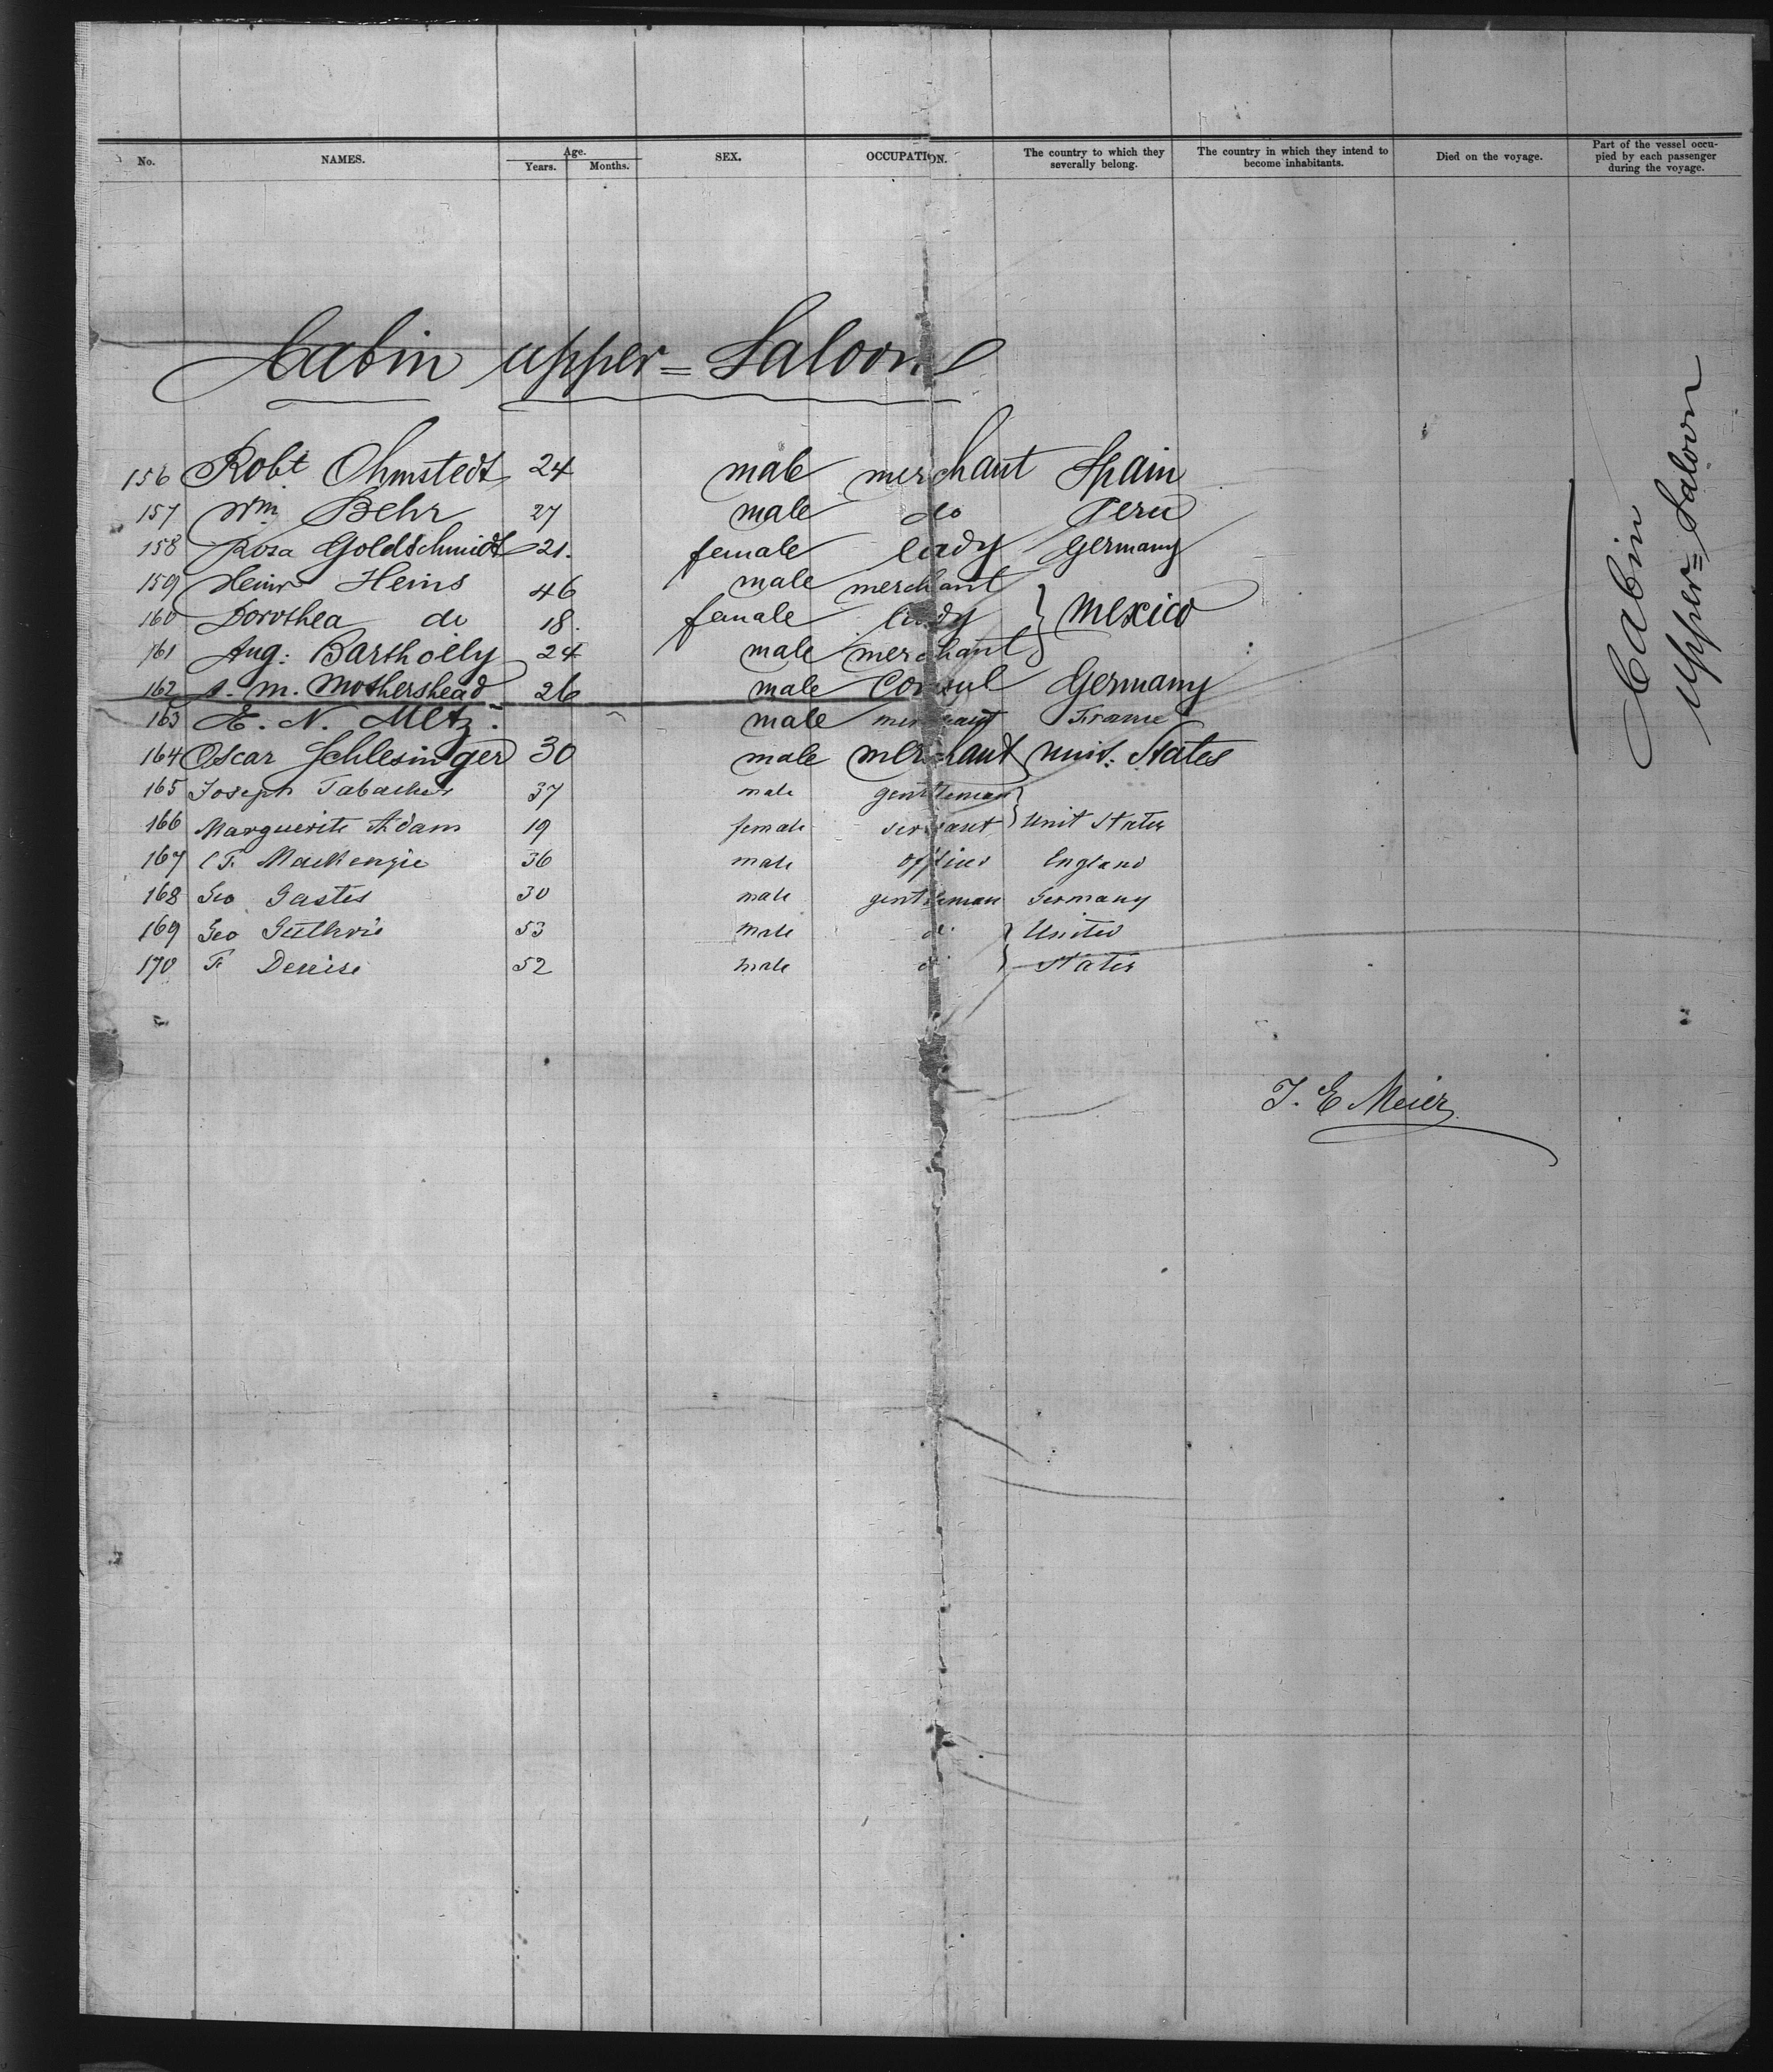 No. NAMES. Age. Years. Months. SEX. OCCUPATION. The country to which they severally belong. The country in which they intend to become inhabitants. Died on the voyage. Part of the vessel occupied by each passenger during the voyage.
Cabin upper = Saloon
156 Robt Ohmstedt 24 male merchant Spain
157 Wm Behr 27 male do Peru
158 Rosa Goldschmidt 21. female lady Germany
159 Heinr Heins 46 male merchant
160 Dorothea do 18. female lady } Mexico
161 Aug: Bartholly 24 male merchant
162 M. Mothershead 26 male Consul Germany
163 E. N. Metz. male merchant France
164 Oscar Schlesinger 30 male merchant unit: States
165 Joseph 37 male gentleman
166 Marguerite Adam 19 female servant } Unit States
167 F. MacKenzie 36 male officer England
168 Geo Gastes 30 male gentleman Germany
169 Geo Guthrie 53 male d: } United
170 F. 52 male d: } States
Cabin
Upper = Saloon
J. E Meier